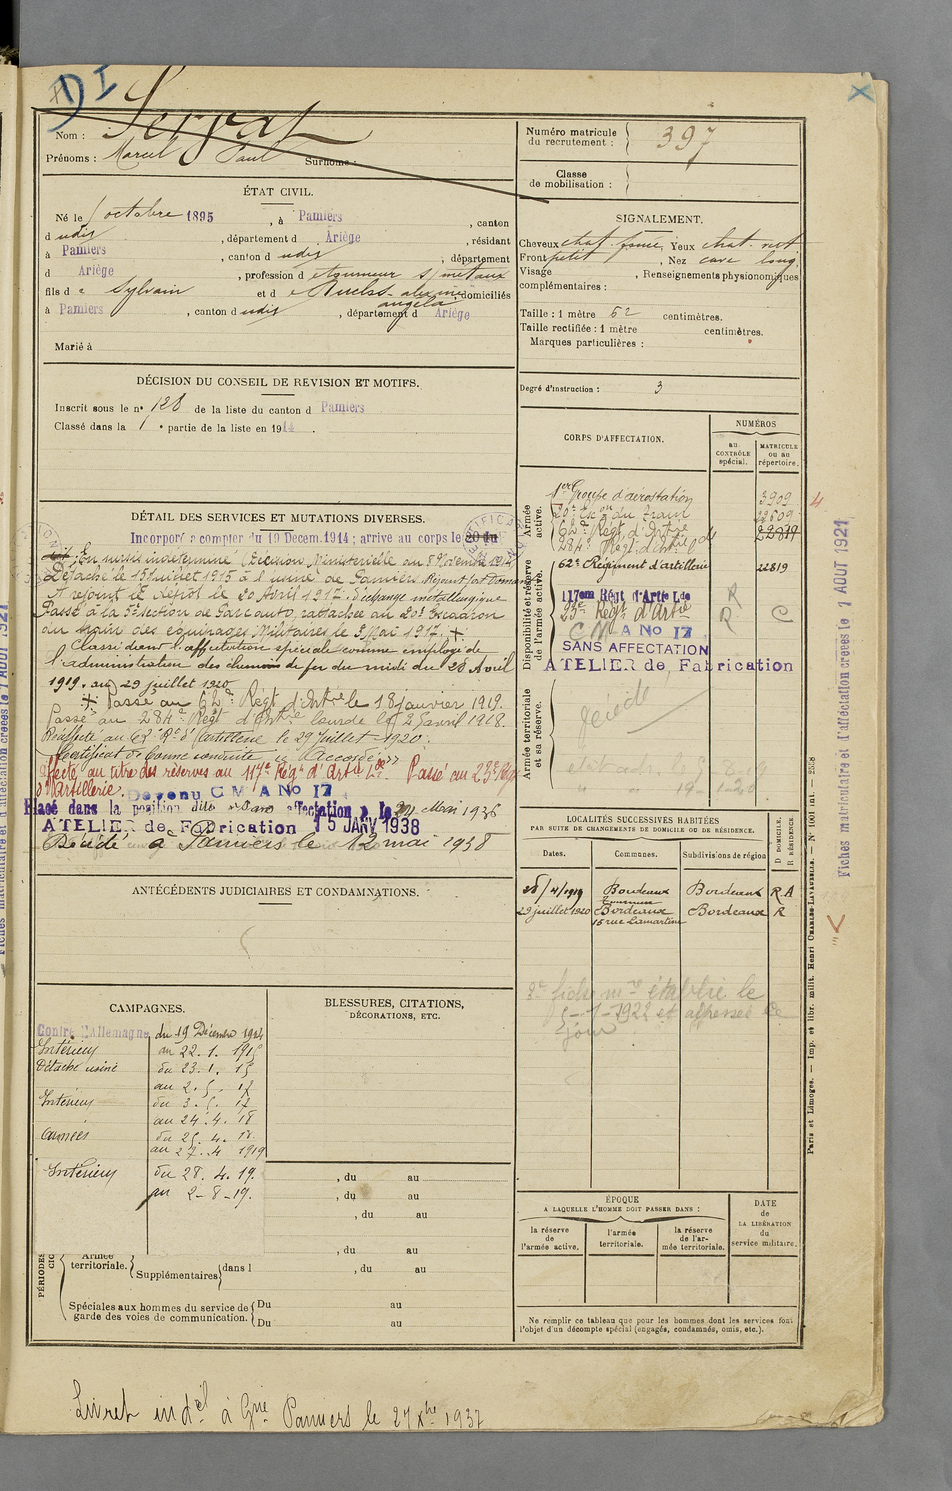 DI
Nom : Serrat
Prénoms : Marcel Paul Surnoms :
Numéro matricule du recrutement : 397
Classe de mobilisation :
ÉTAT CIVIL.
Né le octobre 1895, à Pamiers, canton
d udit, département d Ariège, résidant
à Pamiers, canton d udit, département
d Ariège, profession d s/ métaux
fils d e Sylvain et d e angela, domiciliés
à Pamiers, canton d udit, département d Ariège
Marié à
SIGNALEMENT.
Cheveux chat. foncé, Yeux chat.
Front petit, Nez cave long.
Visage , Renseignements physionomiques
complémentaires :
Taille : 1 mètre 62 centimètres.
Taille rectifiée : 1 mètre centimètres.
Marques particulières :
Degré d'instruction : 3
DÉCISION DU CONSEIL DE REVISION ET MOTIFS.
Inscrit sous le n° 128 de la liste du canton d Pamiers
Classé dans la 1 e partie de la liste en 1914.
DÉTAIL DES SERVICES ET MUTATIONS DIVERSES.
Incorporé a compter du 19 Decem. 1914; arrive au corps le 20 du
dit. En sursis indéterminé Décision Ministérielle du 8 Novembre 1914
Détaché le 15 Juillet 1915 à l'usine de Pamiers.
A rejoint le dépôt le 20 Avril 1917.
Passé à la section de Parc auto, rattachée au 20e Escadron
du train des équipages Militaires le 3 Mai 1917. +
Classé dans l'affectation spéciale comme employé de
l'administration des chemins de fer du midi du 28 Avril
1919. au 29 juillet 1920
+ Passé au 62e Régt d'Artie le 18 janvier 1919.
Passé au 284e Régt d'Artie lourde le 25 avril 1918.
Réaffecté au 62e Rt d'artillerie le 29 Juillet 1920.
Certificat de bonne conduite « Accordé »
affecté au titre des réserves au 117e Régt d'Artie Lde. Passé au 23e Régt
d'Artillerie.
Devenu C M A No 17
Placé dans la position dite Sans affectation, le 24 Mai 1936
ATELIER de Fabrication 15 JANV 1938
Décédé à Pamiers le 12 mai 1938
CORPS D'AFFECTATION.
NUMÉROS
au CONTRÔLE spécial.
MATRICULE ou au répertoire.
Armée active.
1er Groupe d'aérostation 3909
20e Eson du Train 22609
62e Régt d'Artie 22819
284e Régt d'Artie Lde
Disponibilité et réserve de l'armée active.
62e Régiment d'artillerie 22819
117em Régt d'Artie Lde R
23e Regt d'Artie R C
C M A No 17
SANS AFFECTATION
ATELIER de Fabrication
Armée territoriale et sa réserve.
décédé
LOCALITÉS SUCCESSIVES HABITÉES
PAR SUITE DE CHANGEMENTS DE DOMICILE OU DE RÉSIDENCE.
Dates.
Communes.
Subdivisions de région
D DOMICILE. R RÉSIDENCE.
28/4/1919 Bordeaux Bordeaux R A
29 juillet 1920 Bordeaux Bordeaux R
15 rue Lamartine
2e fiche mle établie le
-1-1922 et adressée ce
jour
ANTÉCÉDENTS JUDICIAIRES ET CONDAMNATIONS.
CAMPAGNES.
Contre l'allemagne du 19 Décembre 1914
Intérieur au 22. 1. 1915
Détaché usine du 23. 1. 15
au 2. 5. 17
Intérieur du 3. 5. 17
au 24. 4. 18
Armées du 25. 4. 18
au 27. 4 1919
Intérieur du 28. 4. 19.
au 2-8-19.
BLESSURES, CITATIONS,
DÉCORATIONS, ETC.
, du au
, du au
, du au
, du au
PÉRIODES
Armée territoriale. Supplémentaires dans l , du au
Spéciales aux hommes du service de garde des voies de communication. Du au
Du au
ÉPOQUE
A LAQUELLE L'HOMME DOIT PASSER DANS :
la réserve de l'armée active.
l'armée territoriale.
la réserve de l'armée territoriale.
DATE de LA LIBÉRATION du service militaire.
Ne remplir ce tableau que pour les hommes dont les services font
l'objet d'un décompte spécial (engagés, condamnés, omis, etc.).
Paris et Limoges. — Imp. et libr. milit. Henri CHARLES-LAVAUZELLE. — N° 1001 int. — 2538
Fiches matriculaire et d'affectation creées le 1 AOUT 1921
Livret indel à Gie Pamiers le 27 Xbre 1937